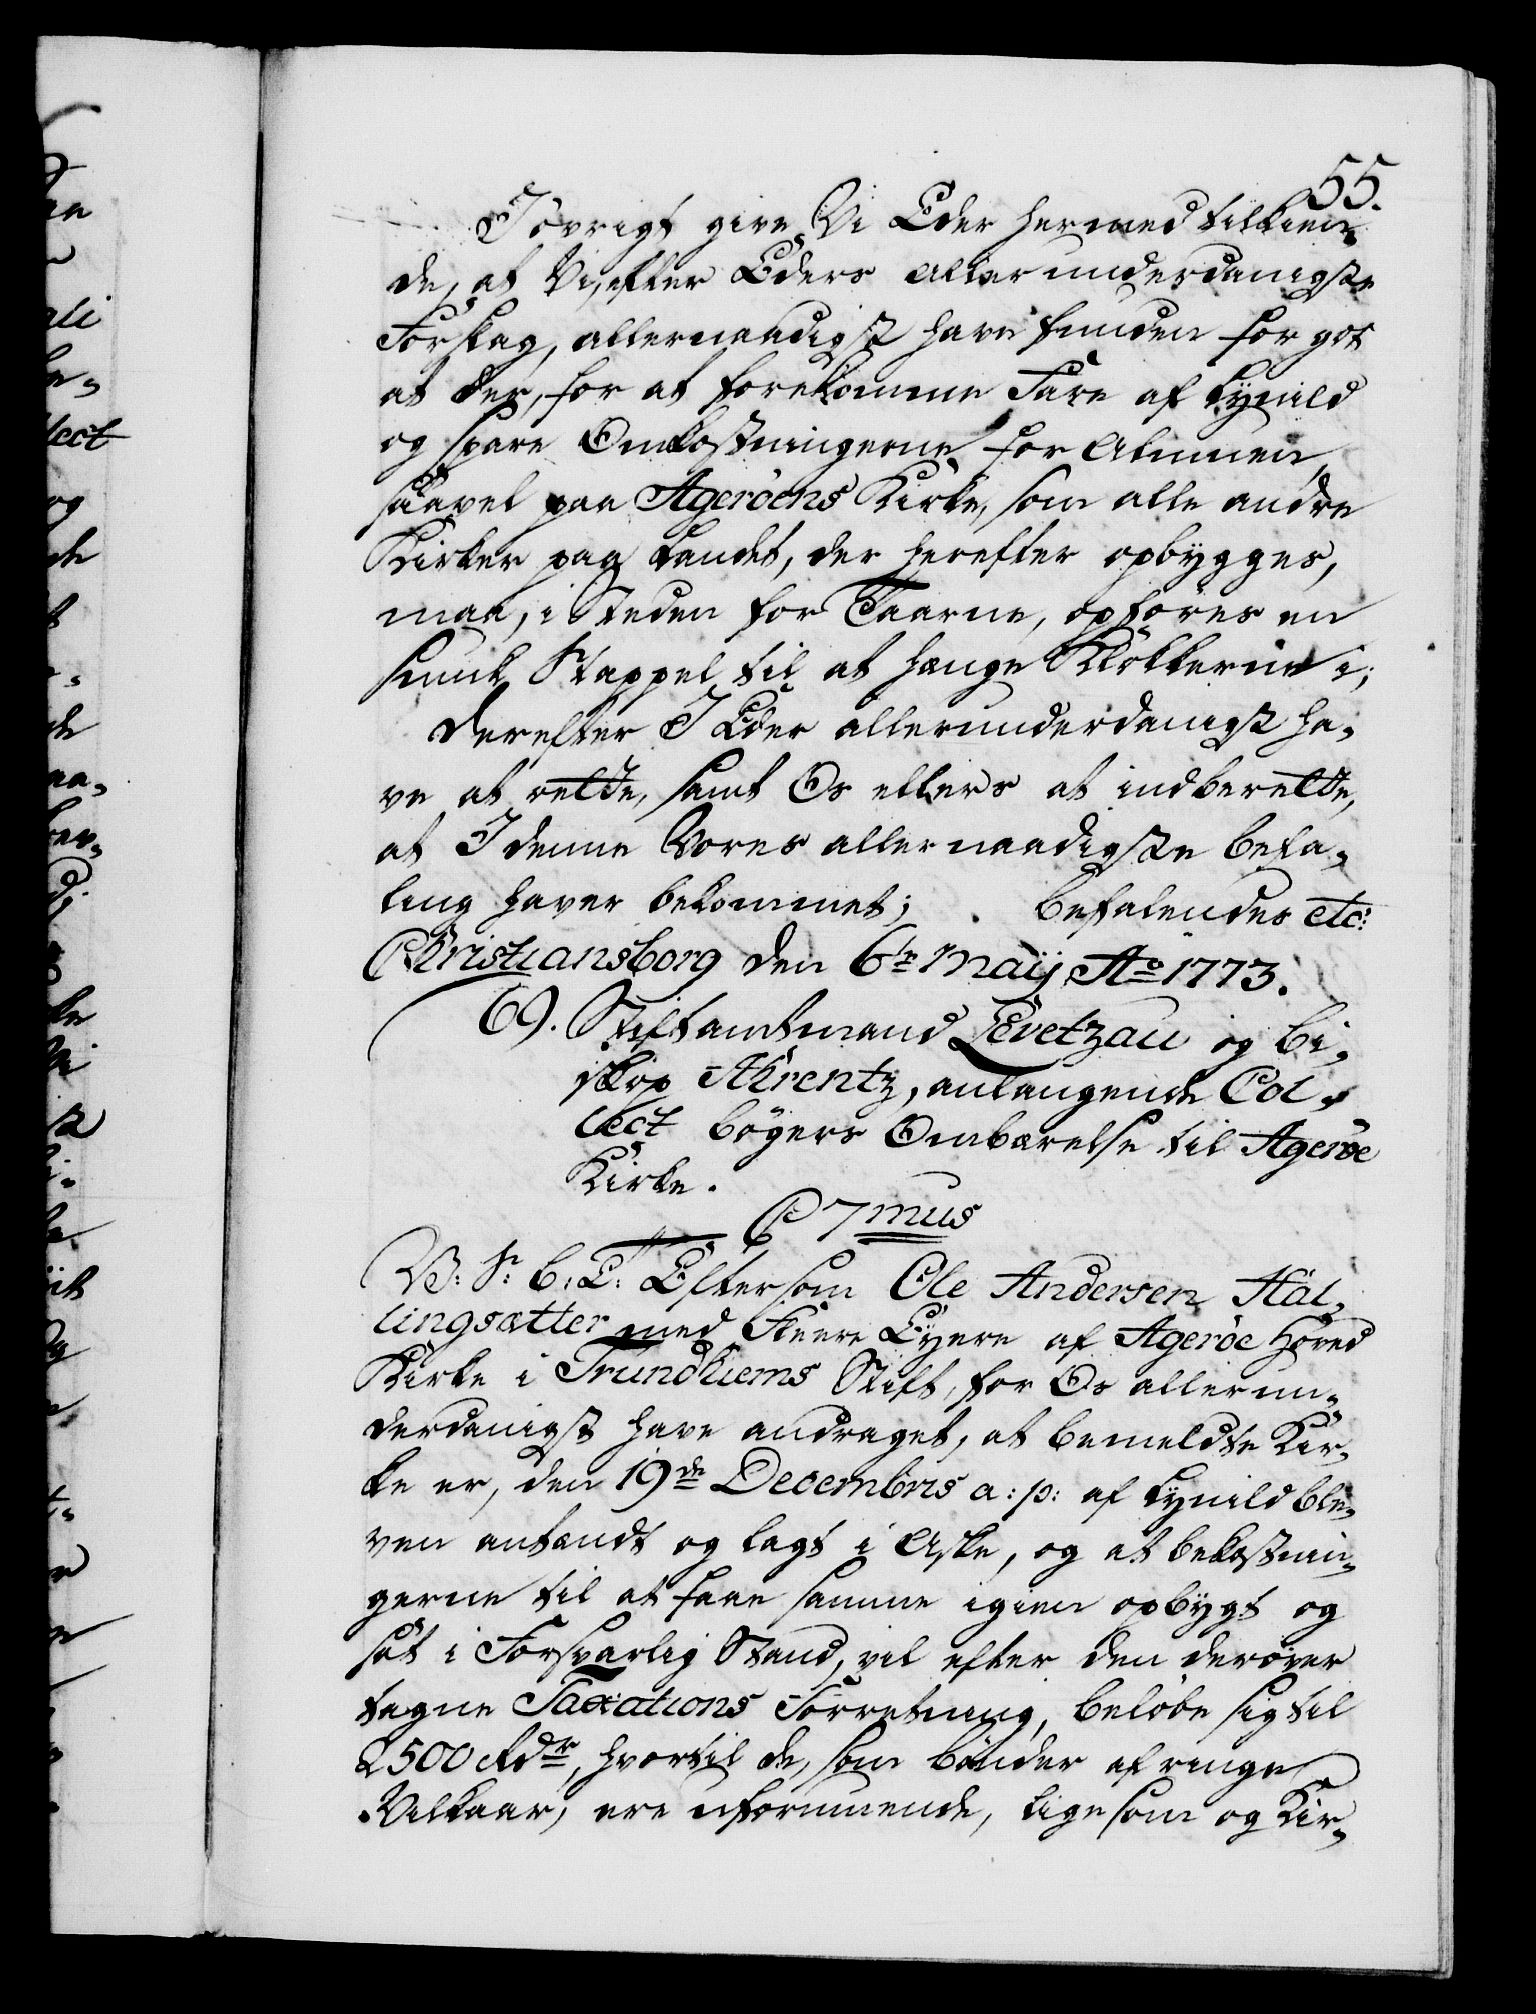 55.
I øvrigt give Vi Eder hermed tilkien-
de, at Vi, efter Eders allerunderdanigste
Forslag, allernaadigst have funden for got
at der, for at forekomme Fare af Lynild
og spare Omkostningerne for Almuen,
saavel paa Agerøens Kirke, som alle andre
Kirker paa Landet, der herefter opbygges,
maa, i Steden for Taarne, opføres en
smuk Stappel til at hænge Klokkerne i;
Derefter I Eder allerunderdanigst ha-
ve at rette, samt Os ellers at indberette,
at I denne Vores allernaadigste Befa-
ling haver bekommet; Befalendes etc:
Christiansborg den 6te Maÿ Ao 1773.
69. Stiftamtmand Levetzau og Bi-
skop Ahrentz, anlangende Col-
lect bøgers Ombærelse til Agerøe
Kirke.
C 7mus
V: S: G: T: Eftersom Ole Andersen Hal-
lingsætter med fleere Eyere af Agerøe Hoved
Kirke i Trundhiems Stift, for Os allerun-
derdanigst have andraget, at bemeldte Kir-
ke er, den 19de Decembris a: p: af Lynild ble-
ven antændt og lagt i Aske, og at bekostnin-
gerne til at faae samme igien opbygt og
sat i Forsvarlig Stand, vil efter den derover
tagne Taxations Forretning, beløbe sig til
2500 Rdr, hvortil de, som bønder af ringe
Vilkaar, ere uformuende, ligesom og Kir-